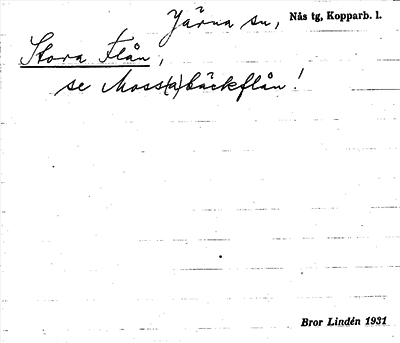 Järna sn, Nås tg, Kopparb. l.
Stora Flån,
se Moss(a)bäckflån!
Bror Lindén 1931